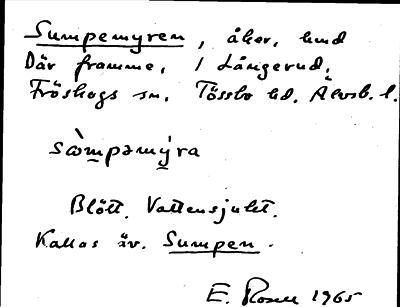 Sumpemyren, åker, lind
Där framme, i Långerud,
Fröskogs sn. Tössbo hd. Älvsb. l.
sɷ̀mpəmýra
Blött. Vattensjukt.
Kallas äv. Sumpen.
E. 1965